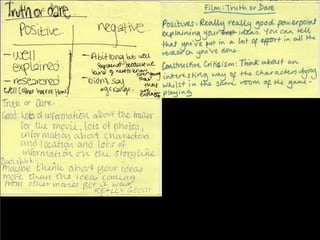 Truth or Dare
Positive
negative
- well explained
- researched
well (other horror films)
- A bit long but well
- Didn't say
age range.
Film: Truth or Dare
Positives: Really really good powerpoint
explaining your ideas. You can tell
that you've put in a lot of effort in all the
research you've done.
Constructive Criticism: Think about an
interesting way of the characters dying
whilst in the same room of the game-
playing.
Truth or Dare:
Good: Lots of information about the trailer
for the movie, lots of photos,
information about characters
and location and lots of
information on the storyline.
maybe think about your ideas
more than the ideas coming
from other movies. But it was
REALLY GOOD!